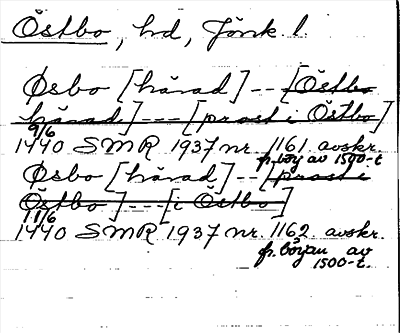 Östbo, hd, Jönk. l.
Øsbo [härad] -- [Östbo
härad] --- [prost i Östbo]
9/6
1440 SMR 1937 nr. 1161 avskr.
fr. börj av 1500-t
Øsbo [härad] -- [prost i
Östbo] --- [i Östbo]
11/6
1440 SMR 1937 nr. 1162 avskr.
fr. början av
1500-t.